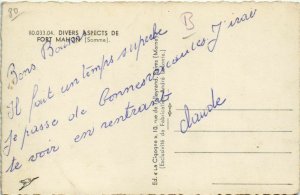 80
B
80.033.04. DIVERS ASPECTS DE
FORT MAHON (Somme).
Bons Baisers
Il fait un temps superbe
Je passe de bonnes vacances J'irai
te voir en rentrant
Claude
Edit. "La Cigogne", 10, rue de
(Exclusivité de Fabrication